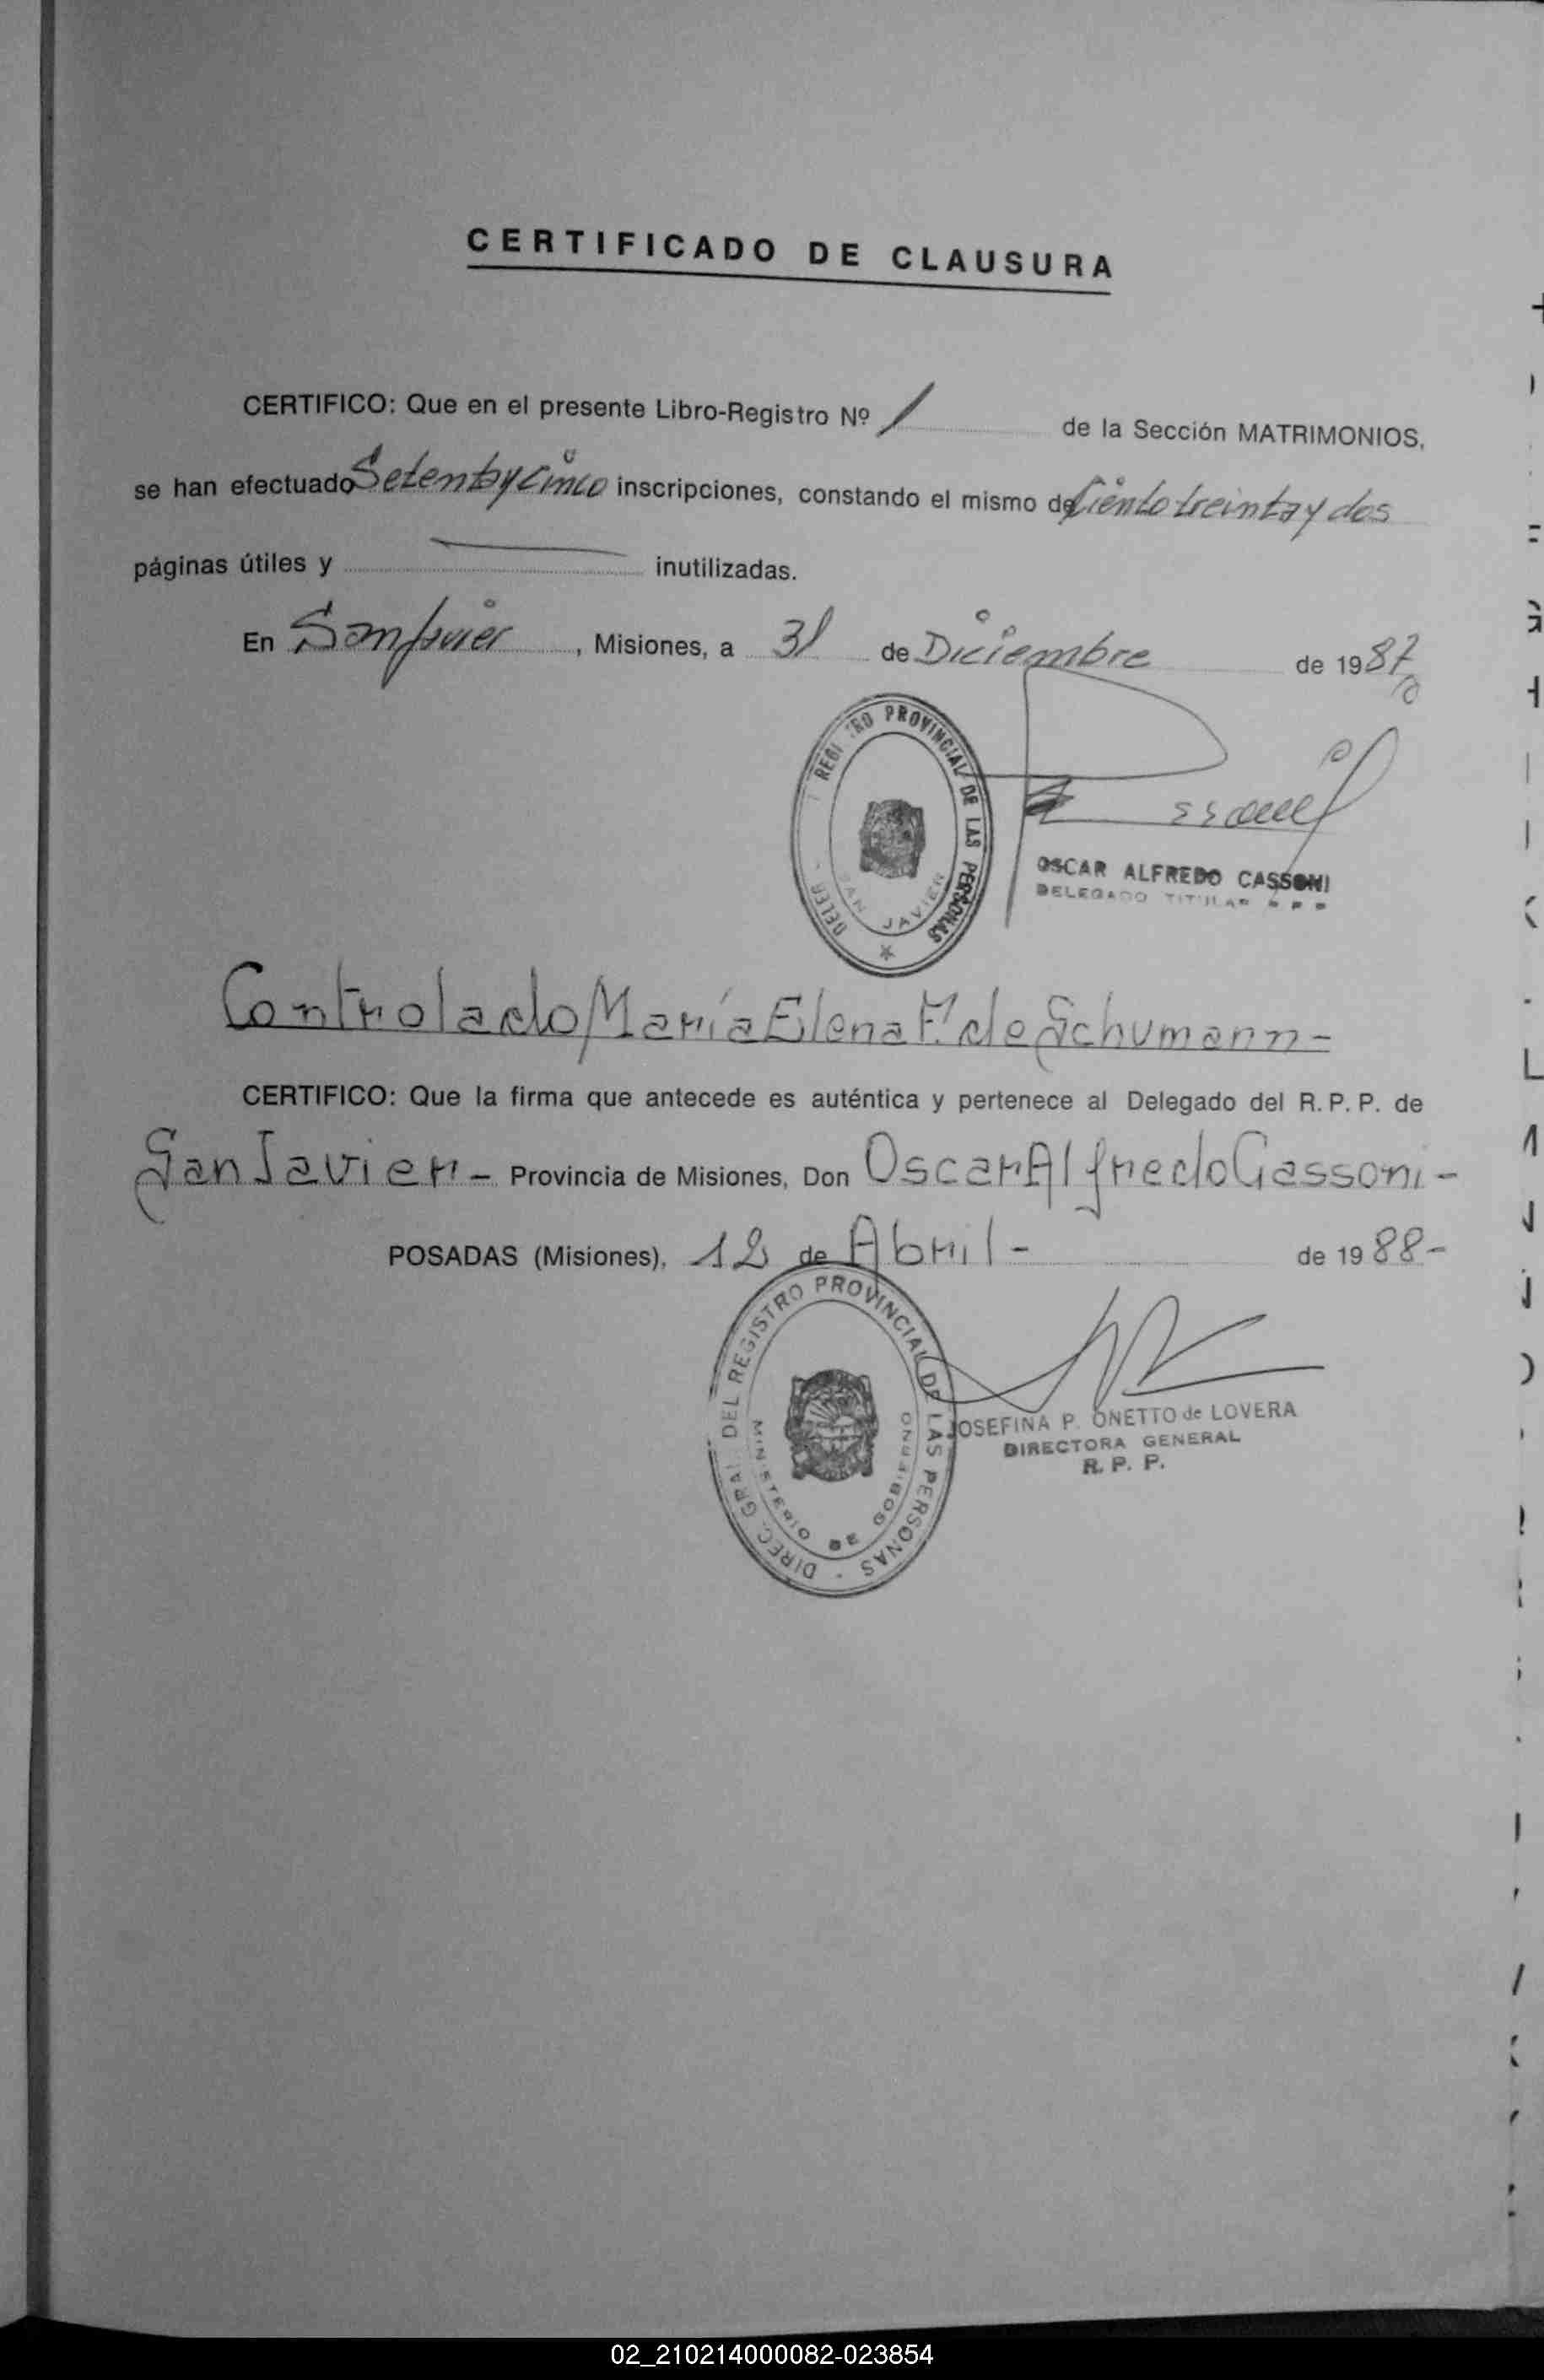 CERTIFICADO DE CLAUSURA
CERTIFICO: Que en el presente Libro-Registro Nº 1 de la Sección MATRIMONIOS,
se han efectuado Setenta y Cinco inscripciones, constando el mismo de Ciento treinta y dos
páginas útiles y — inutilizadas.
En San Javier, Misiones, a 31 de Diciembre de 1987
REGISTRO PROVINCIAL DE LAS PERSONAS
SAN JAVIER
OSCAR ALFREDO CASSONI
DELEGADO TITULAR R P P
Controlado María Elena F. de Schumann -
CERTIFICO: Que la firma que antecede es auténtica y pertenece al Delegado del R. P. P. de
San Javier - Provincia de Misiones, Don Oscar Alfredo Cassoni -
POSADAS (Misiones), 12 de Abril - de 1988-
DIREC. GRAL. DEL REGISTRO PROVINCIAL DE LAS PERSONAS -
MINISTERIO DE GOBIERNO
JOSEFINA P. ONETTO de LOVERA
DIRECTORA GENERAL
R. P. P.
02_210214000082-023854